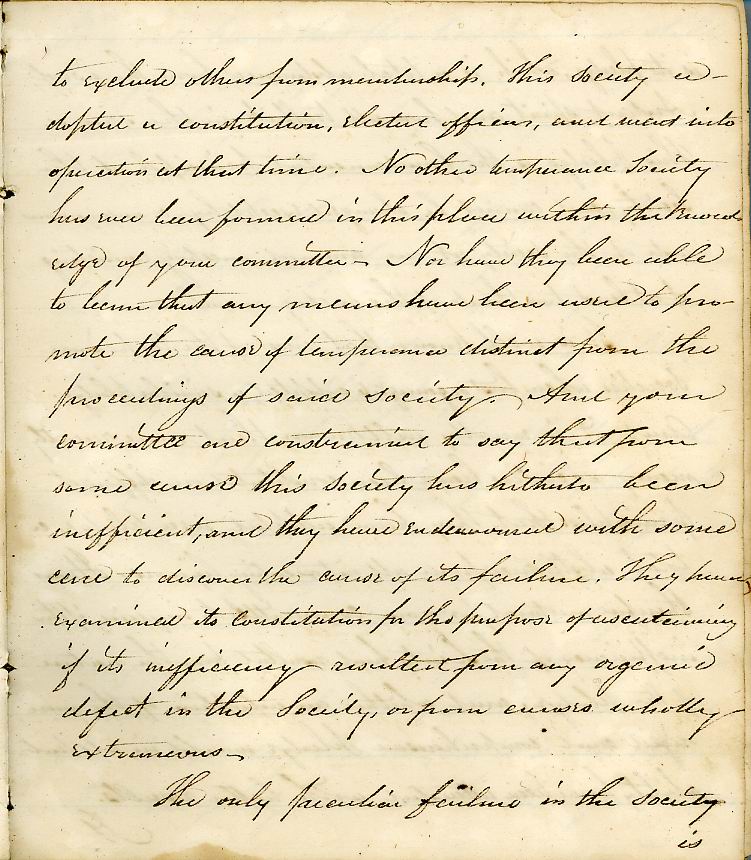 to exclude others from membership. This Society a-
dopted a constitution, elected officers, and went into
operation at that time. No other temperance Society
has ever been formed in this place within the knowl
edge of your committee - Nor have they been able
to learn that any means have been used to pro-
mote the cause of temperance distinct from the
proceedings of said Society. And your
committee are constrained to say that from
some cause this Society has hitherto been
inefficient, and they have endeavoured with some
care to discover the cause of its failure. They have
examined its constitution for the purpose of ascertaining
if its inefficiency resulted from any organic
defect in the Society, or from causes wholly
extraneous -
The only peculiar failure in the Society
is